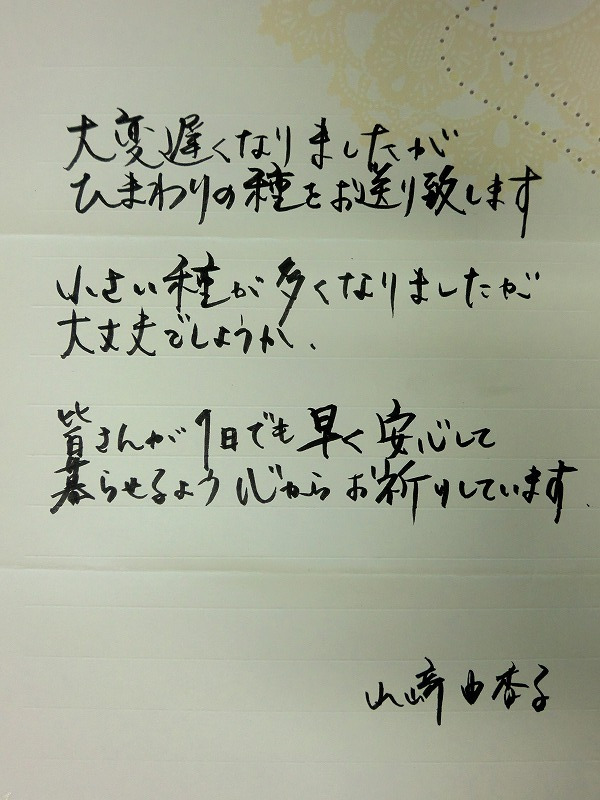 大変遅くなりましたが
ひまわりの種をお送り致します
小さい種が多くなりましたが
大丈夫でしょうか、
皆さんが1日でも早く安心して
暮らせるよう心からお祈りしています.
山﨑由香子